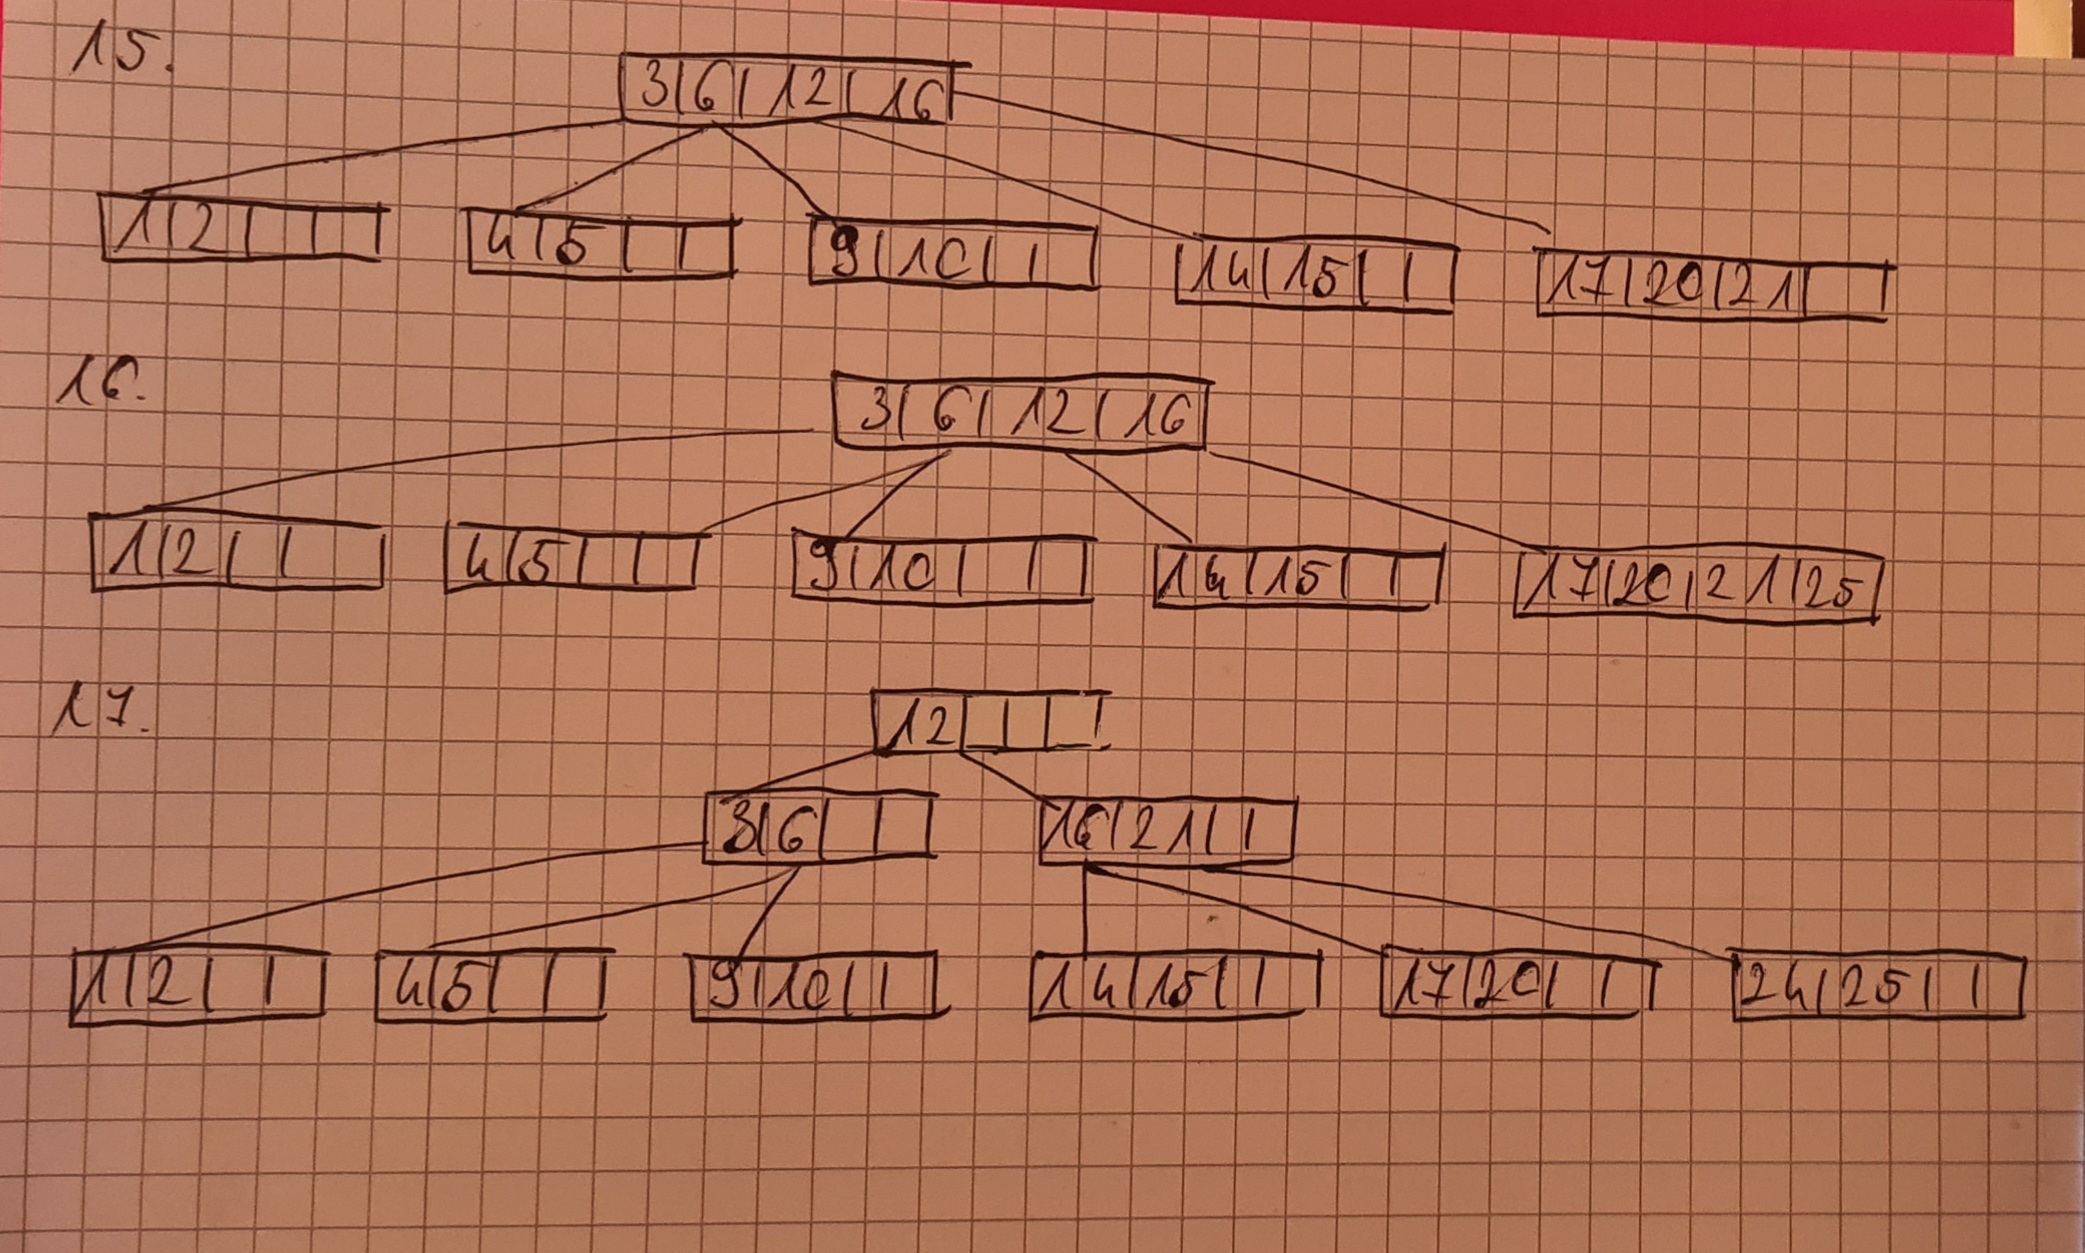 15.
3|6|12|16
1|2| | |
4|5| |
9|10| |
14|15| |
17|20|21|
16.
3|6|12|16
1|2| |
4|5| | |
9|10| | |
14|15| |
17|20|21|25
17.
12| | |
3|6| |
16|21| |
1|2| |
4|5| |
9|10| |
14|15| |
17|20| | |
24|25| |